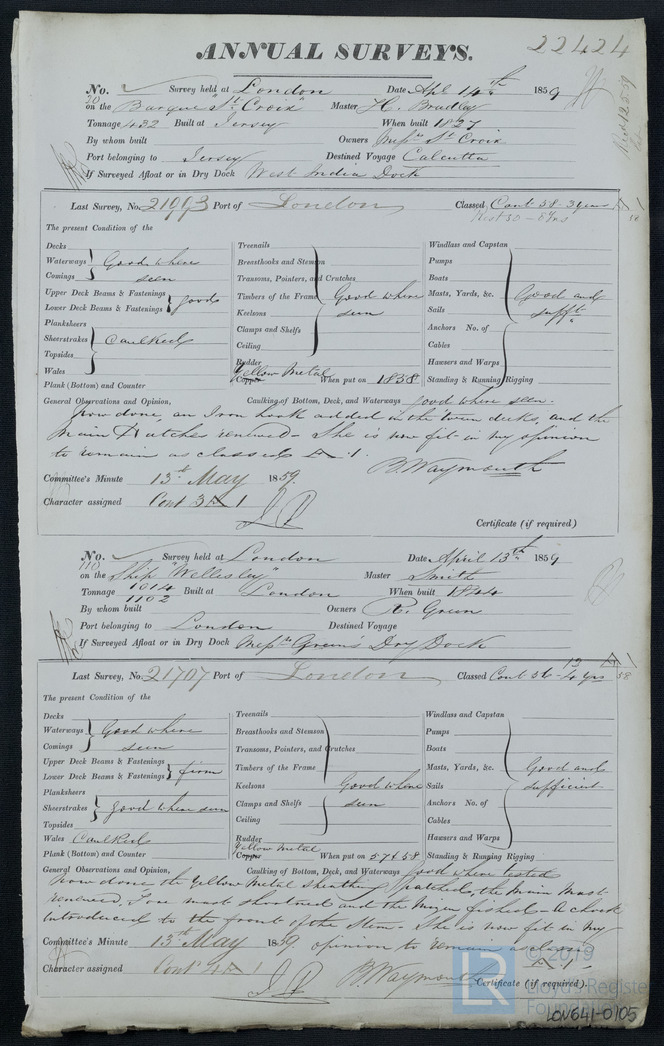 22424
ANNUAL SURVEYS.
No. 20 Survey held at London Date Apl 14th 1859
on the Barque "St Croix" Master H. Bradley
Tonnage 432 Built at Jersey When built 1827
By whom built Owners Messrs St Croix
Port belonging to Jersey Destined Voyage Calcutta
If Surveyed Afloat or in Dry Dock West India Dock
Last Survey, No. 21993 Port of London Classed Cont 58 - 3 years A 1
Rest 50 - 8 yrs
The present Condition of the
Decks Treenails Windlass and Capstan
Waterways Good where Breasthooks and Stemson Pumps
Comings seen Transoms, Pointers, and Crutches Boats
Upper Deck Beams & Fastenings good Timbers of the Frame Good where Masts, Yards, &c. Good and
Lower Deck Beams & Fastenings Keelsons seen Sails sufft.
Planksheers Clamps and Shelfs Anchors No. of
Sheerstrakes Caulked Ceiling Cables
Topsides Rudder Hawsers and Warps
Wales Yellow Metal
Plank (Bottom) and Counter Copper When put on 1858 Standing & Running Rigging
General Observations and Opinion, Caulking of Bottom, Deck, and Waterways good where seen.
Now done, an Iron hook added in the 'tween decks, and the
Main Hatches renewed - She is now fit in my opinion
to remain as classed A.1.
B. Waymouth
Committee's Minute 13th May 1859.
Character assigned Cont 3 A 1
Certificate (if required)
No. 110 Survey held at London Date April 13th 1859
on the Ship "Wellesley" Master Smith
Tonnage 1014 1102 Built at London When built 1844
By whom built Owners R. Green
Port belonging to London Destined Voyage
If Surveyed Afloat or in Dry Dock Messrs Green's Dry Dock
Last Survey, No. 21707 Port of London Classed Cont 56 - 4 yrs 58
The present Condition of the
Decks Treenails Windlass and Capstan
Waterways Good where Breasthooks and Stemson Pumps
Comings seen Transoms, Pointers, and Crutches Boats
Upper Deck Beams & Fastenings firm Timbers of the Frame Masts, Yards, &c. Good and
Lower Deck Beams & Fastenings Keelsons Good where Sails sufficient
Planksheers Clamps and Shelfs seen Anchors No. of
Sheerstrakes good where seen Ceiling Cables
Topsides Rudder Hawsers and Warps
Wales Caulked Yellow Metal
Plank (Bottom) and Counter Copper When put on 57 & 58 Standing & Running Rigging
General Observations and Opinion, Caulking of Bottom, Deck, and Waterways good where tested
Now done the Yellow Metal sheathing patched, the Main Mast
renewed, Fore mast shortened and the Mizen fished - A chock
introduced to the front of the Stem. She is now fit in my
Committee's Minute 13th May 1859 opinion to remain as classed
A.1.
Character assigned Cont 4 A 1 B. Waymouth Certificate (if required).
© 2019
Lloyd's Register
Foundation
LR
LON641-0105